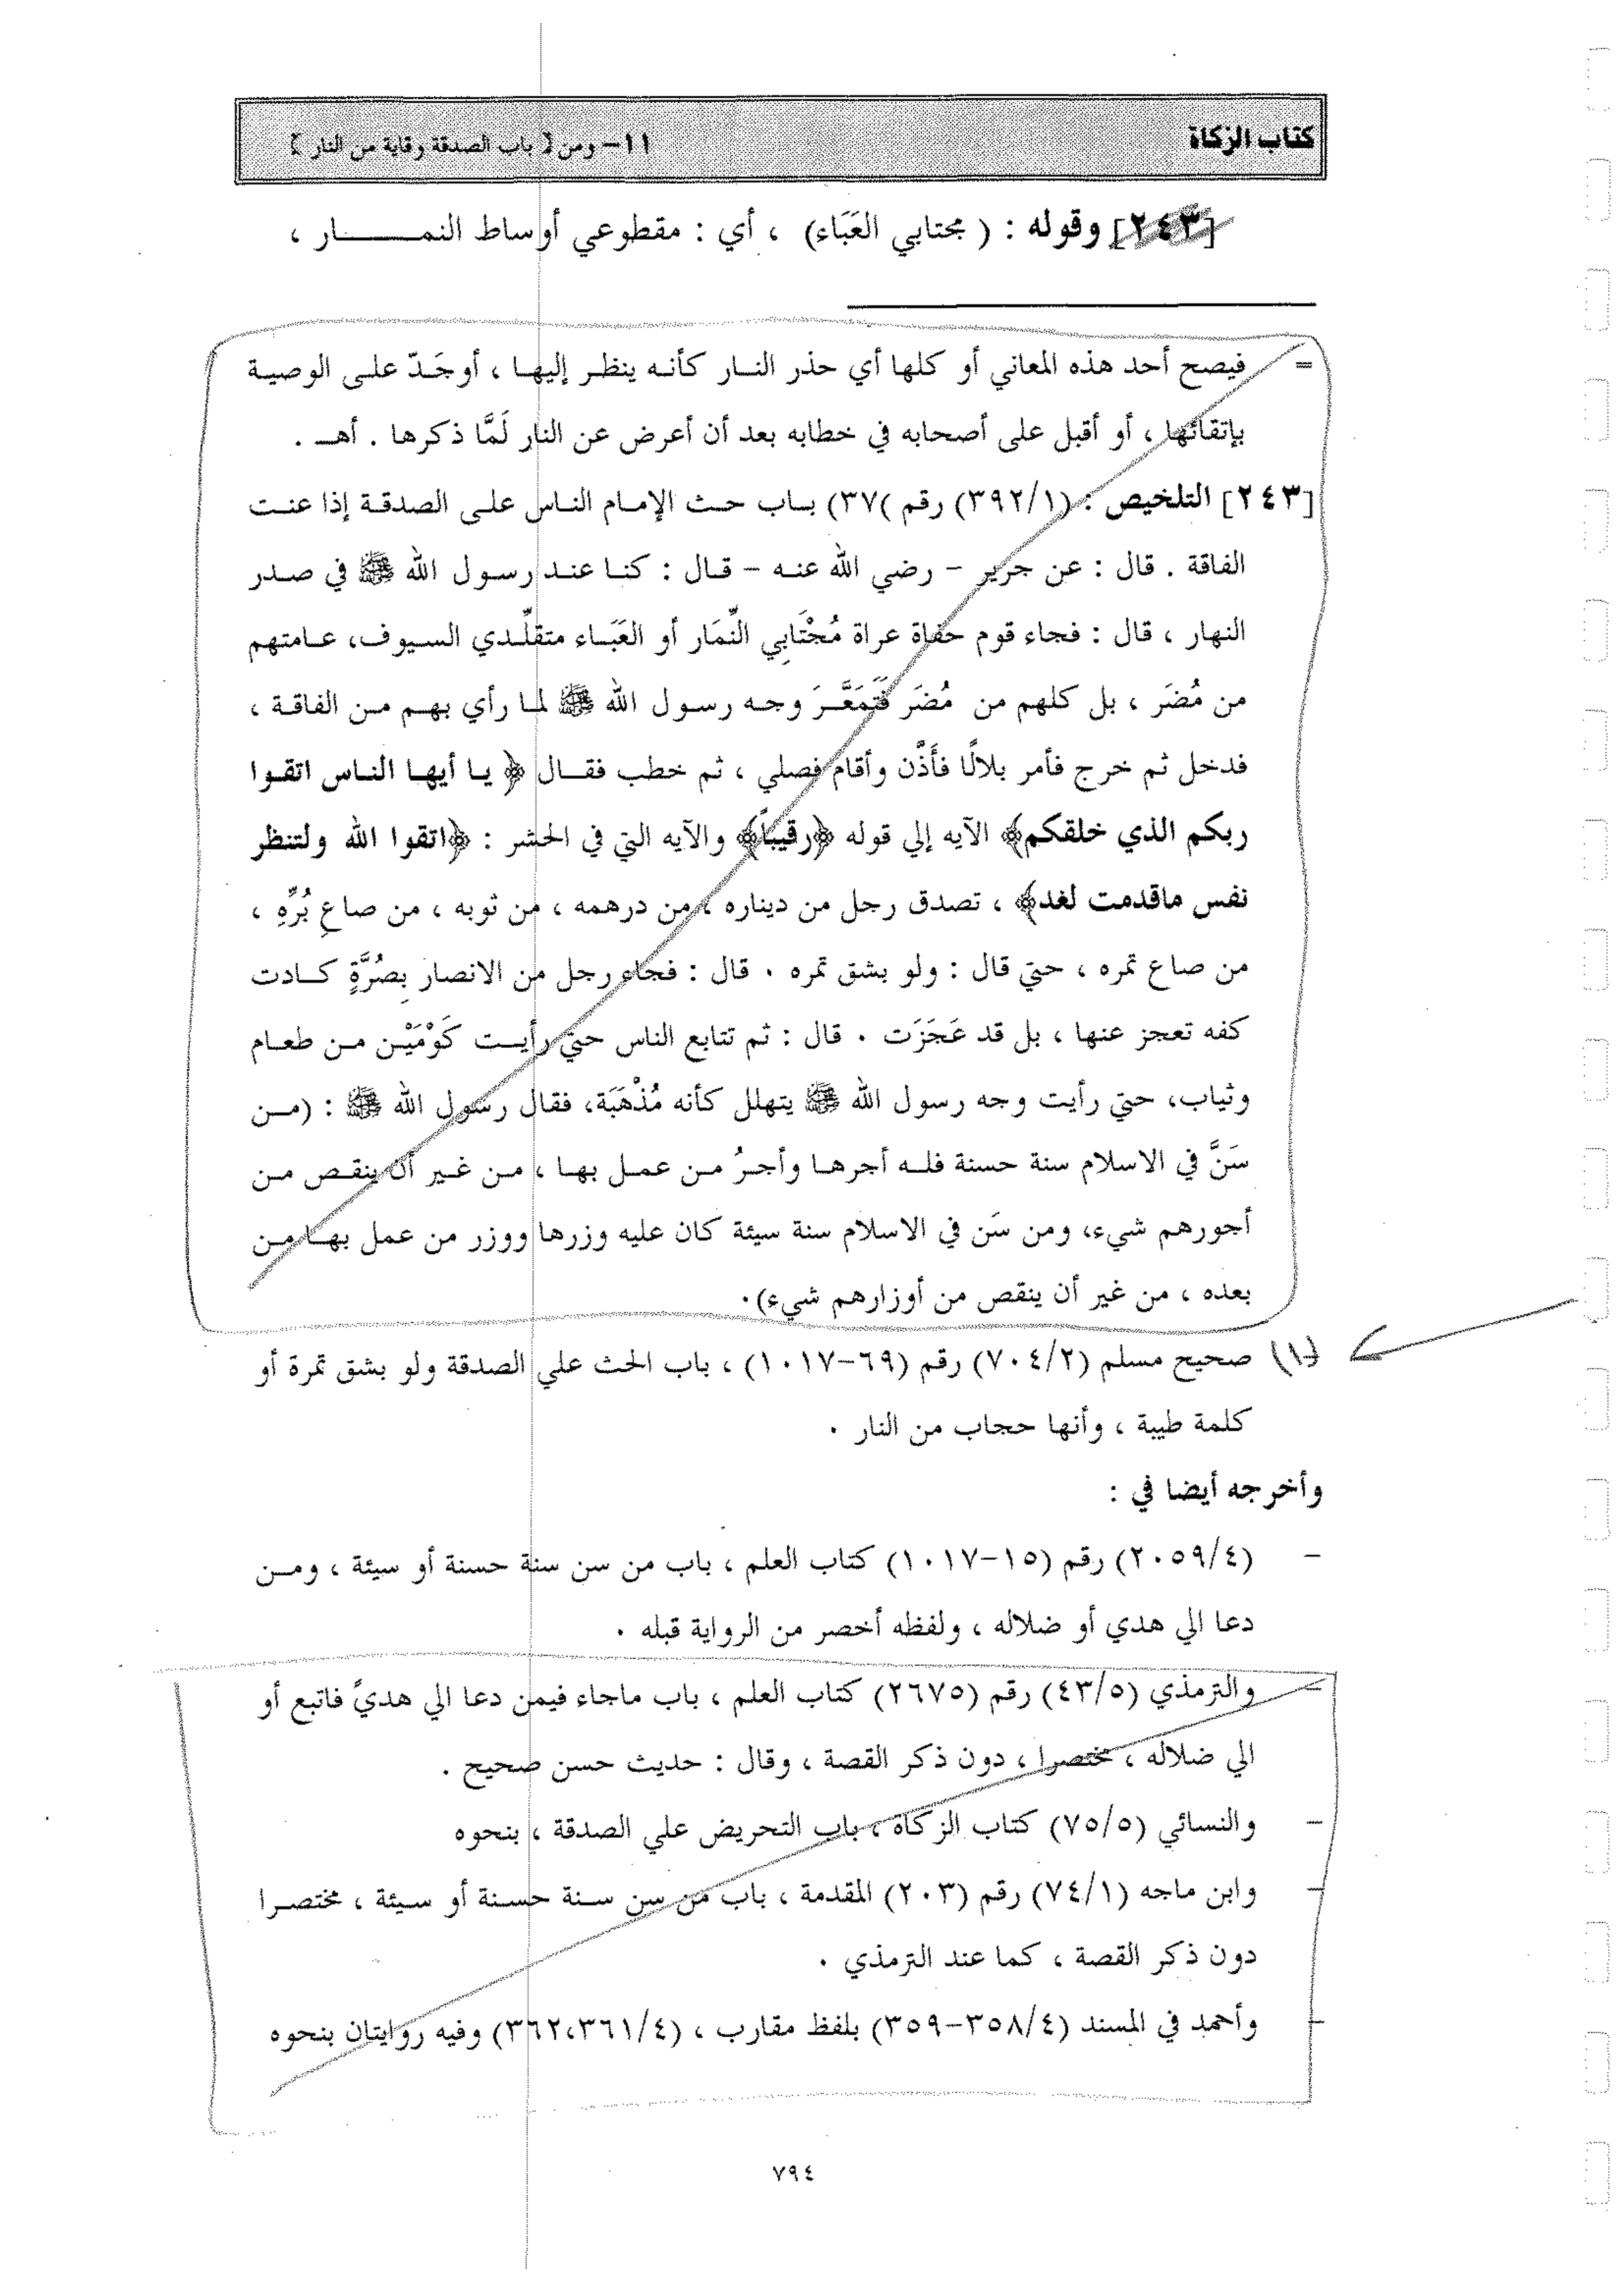 كتاب الزكاة
١١- ومن [ باب الصدقة وقاية من النار ]
[٢٤٣] وقوله : ( مجتابي العَبَاء) ، أي : مقطوعي أوساط النمـــــار ،
= فيصح أحد هذه المعاني أو كلها أي حذر النار كأنه ينظر إليها ، أوجَدّ على الوصية
بإتقائها ، أو أقبل على أصحابه في خطابه بعد أن أعرض عن النار لَمَّا ذكرها . أهـ .
[٢٤٣] التلخيص : (٣٩٢/١) رقم )٣٧) باب حث الإمام الناس على الصدقة إذا عنت
الفاقة . قال : عن جرير - رضي الله عنه - قال : كنا عند رسول الله ﷺ في صدر
النهار ، قال : فجاء قوم حفاة عراة مُجْتَابِي النِّمَار أو العَبَاء متقلِّدي السيوف، عامتهم
من مُضَر ، بل كلهم من مُضَر فَتَمَعَّرَ وجه رسول الله ﷺ لما رأي بهم من الفاقة ،
فدخل ثم خرج فأمر بلالًا فأَذَّن وأقام فصلي ، ثم خطب فقال ﴿ يا أيها الناس اتقوا
ربكم الذي خلقكم﴾ الآيه إلي قوله ﴿رقيباً﴾ والآيه التي في الحشر : ﴿اتقوا الله ولتنظر
نفس ماقدمت لغد﴾ ، تصدق رجل من ديناره ، من درهمه ، من ثوبه ، من صاعِ بُرِّهِ ،
من صاع تمره ، حتي قال : ولو بشق تمره . قال : فجاء رجل من الانصار بِصُرَّةٍ كادت
كفه تعجز عنها ، بل قد عَجَزَت . قال : ثم تتابع الناس حتي رأيت كَوْمَيْن من طعام
وثياب، حتي رأيت وجه رسول الله ﷺ يتهلل كأنه مُذْهَبَة، فقال رسول الله ﷺ : (من
سَنَّ في الاسلام سنة حسنة فله أجرها وأجرُ من عمل بها ، من غير أن ينقص من
أجورهم شيء، ومن سَن في الاسلام سنة سيئة كان عليه وزرها ووزر من عمل بها من
بعده ، من غير أن ينقص من أوزارهم شيء).
(١) صحيح مسلم (٧٠٤/٢) رقم (٦٩-١٠١٧) ، باب الحث علي الصدقة ولو بشق تمرة أو
كلمة طيبة ، وأنها حجاب من النار .
وأخرجه أيضا في :
- (٢٠٥٩/٤) رقم (١٥-١٠١٧) كتاب العلم ، باب من سن سنة حسنة أو سيئة ، ومن
دعا الي هدي أو ضلاله ، ولفظه أخصر من الرواية قبله .
- والترمذي (٤٣/٥) رقم (٢٦٧٥) كتاب العلم ، باب ماجاء فيمن دعا الي هديً فاتبع أو
الي ضلاله ، مختصرا ، دون ذكر القصة ، وقال : حديث حسن صحيح .
- والنسائي (٧٥/٥) كتاب الزكاة ، باب التحريض علي الصدقة ، بنحوه
- وابن ماجه (٧٤/١) رقم (٢٠٣) المقدمة ، باب من سن سنة حسنة أو سيئة ، مختصرا
دون ذكر القصة ، كما عند الترمذي .
- وأحمد في المسند (٣٥٨/٤-٣٥٩) بلفظ مقارب ، (٣٦٢،٣٦١/٤) وفيه روايتان بنحوه
٧٩٤